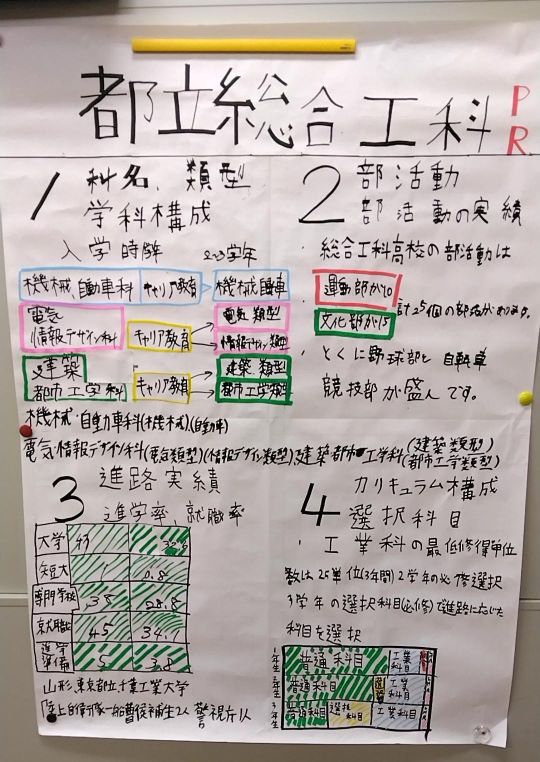 都立総合工科
PR
1 科名、類型
学科構成
入学時
2~3学年
機械、自動車科 キャリア教育 機械自動車
電気
情報デザイン科
キャリア教育
電気類型
情報デザイン類型
建築
都市工学科
キャリア教育
建築類型
都市工学類型
機械・自動車科(機械)(自動車)
電気・情報デザイン科(電気類型)(情報デザイン類型)建築都市工学科(建築類形)(都市工学類型)
2 部活動
部活動の実績
・総合工科高校の部活動は
運動部が10
文化部が15
計25個の部活があります。
・とくに野球部と自転車
競技部が盛んです。
3 進路実績
進学率 就職率
大学 43
短大 1 0.8
専門学校 38 28.8
就職 45 34.1
進学準備 5 3.8
山形、東京都立千葉工業大学
「陸上自衛隊一般曹侯補生2人 警視庁1人
4 カリキュラム構成
選択科目
・工業科の最低修得単位
数は25単位(3年間)2学年の必修選択
3学年の選択科目(必修)で進路に応じた
科目を選択
1年生 普通科目 工業科目
2年生 普通科目 工業科目
3年生 普通科目 選択科目 工業科目